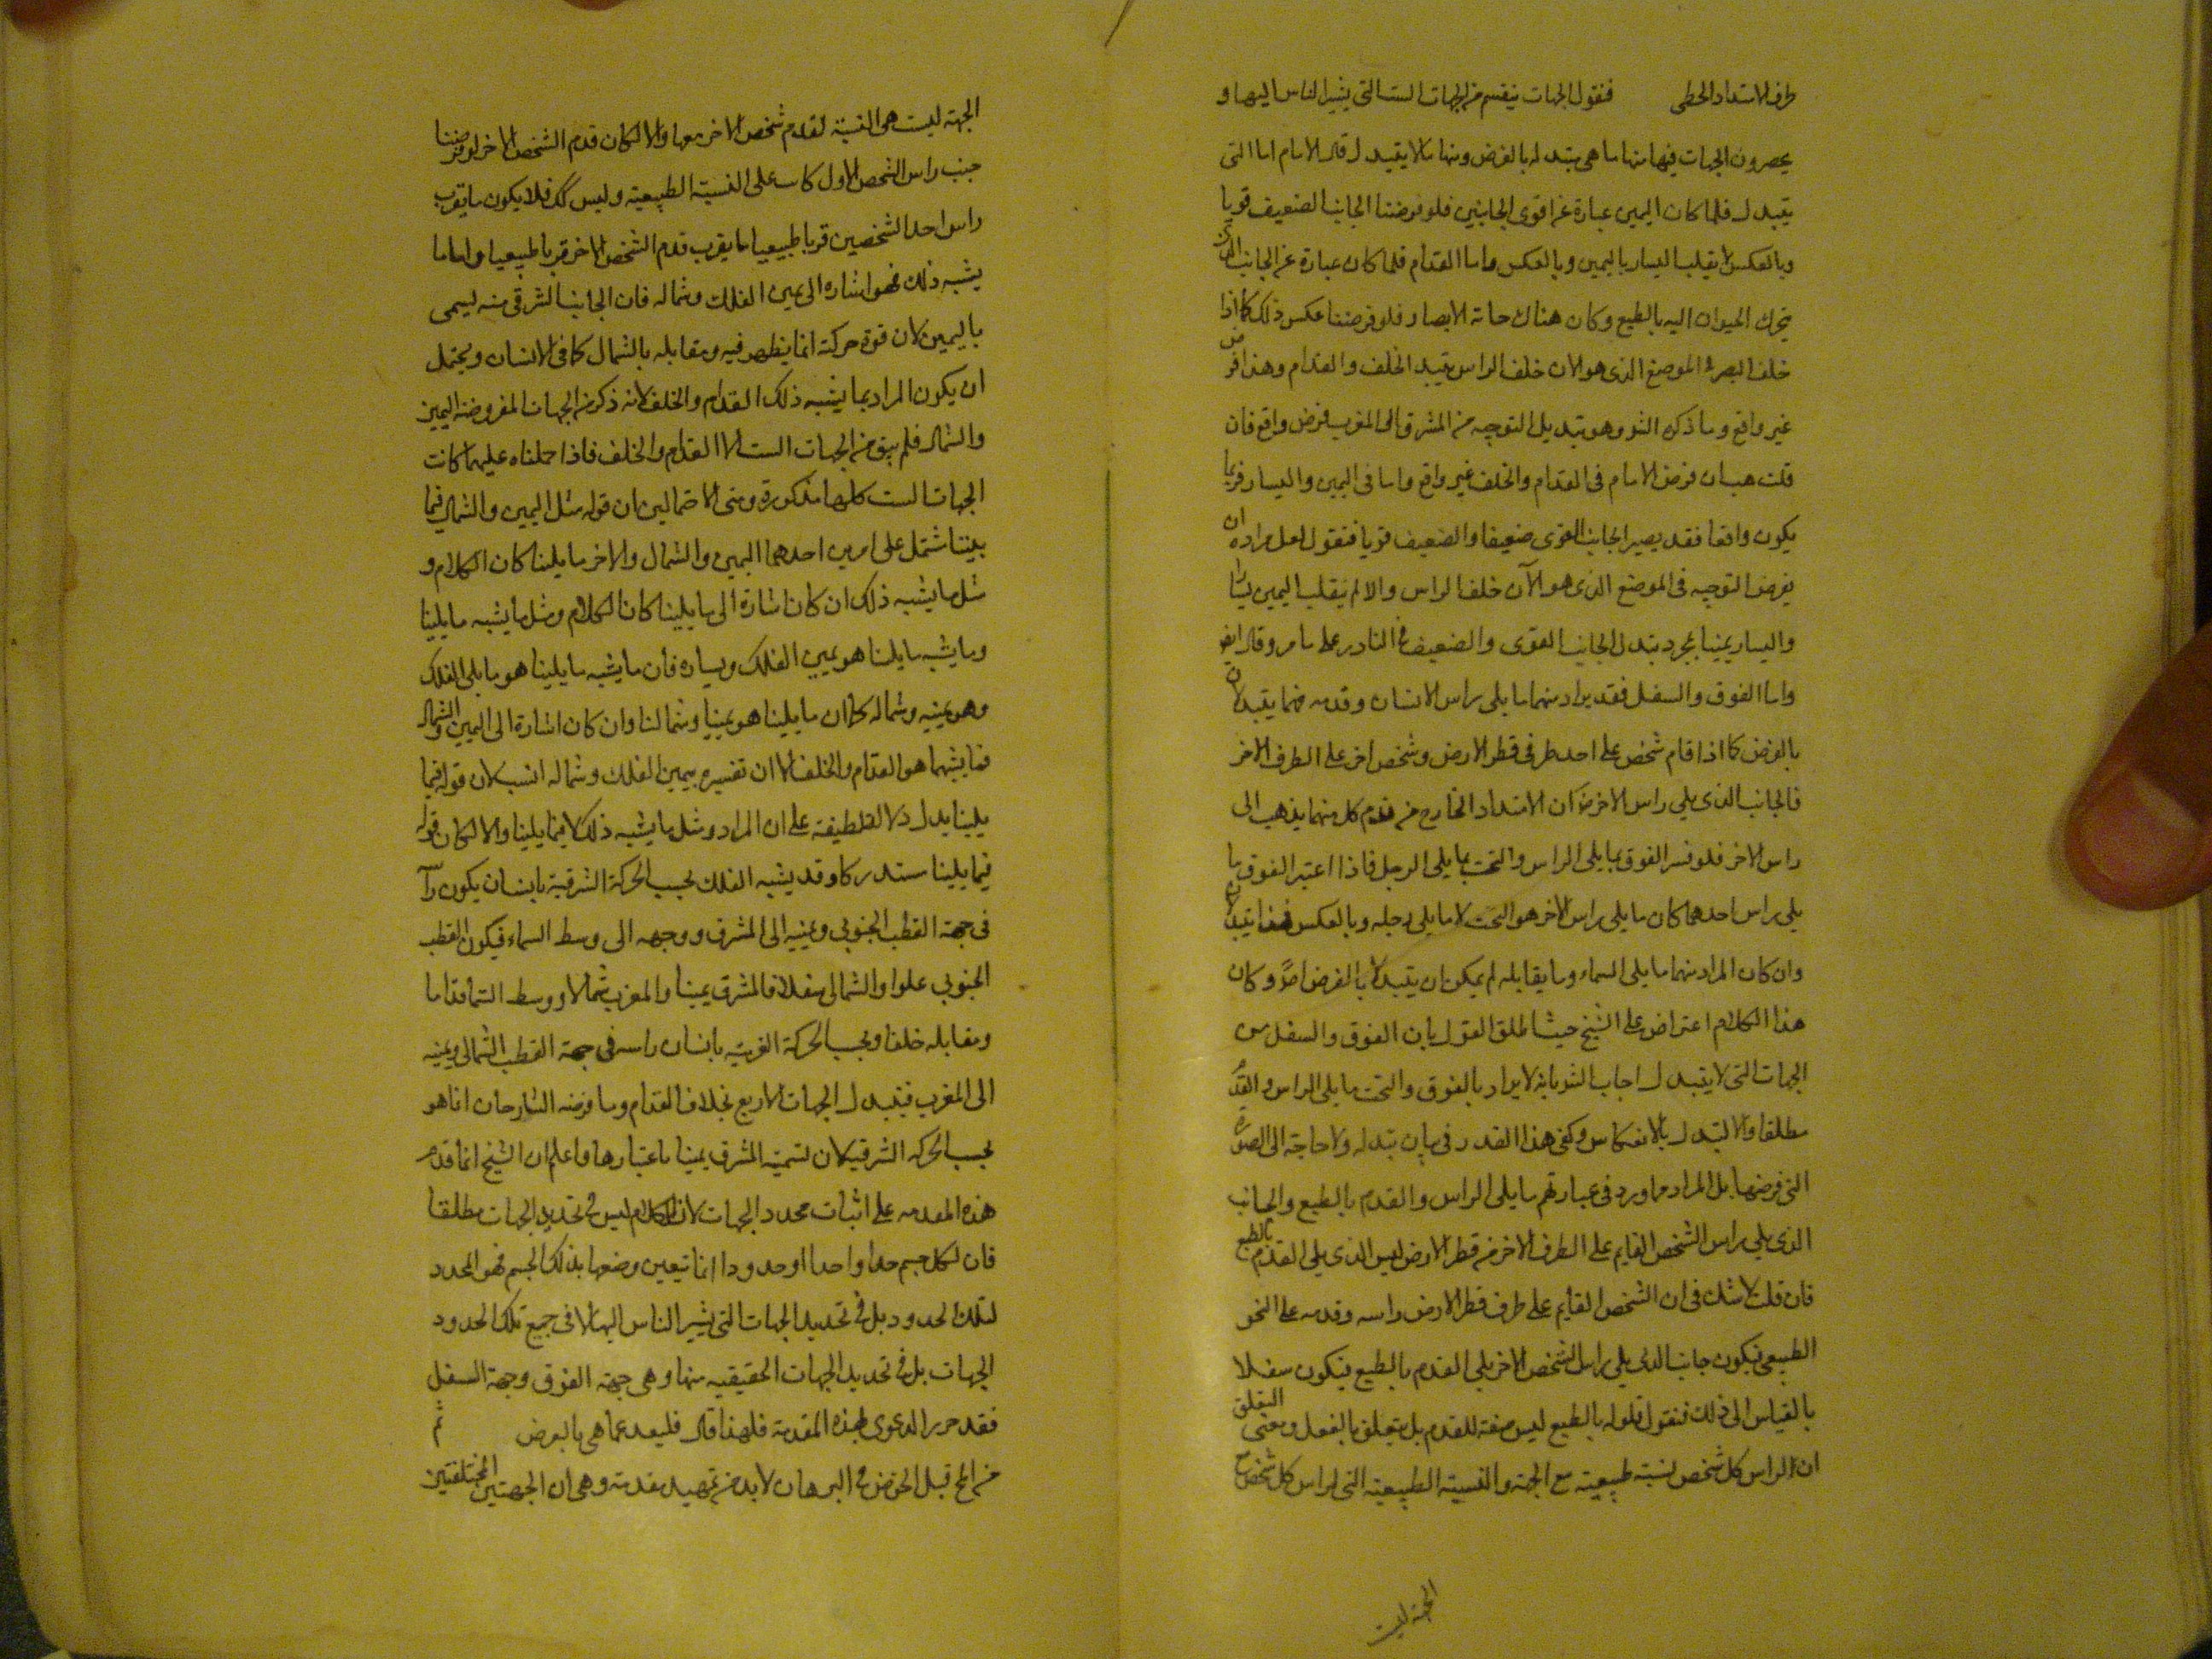 طرف الامتداد الخطى فنقول الجهات ينقسم من الجهات الست التى يشير الناس اليها و
يحصرون الجهات فيها منها ما هى يتبدله بالفرض ومنها ما لا يتبدل قال الامام اما التى
يتبدل فلما كان اليمين عبارة عن اقوى الجانبين فلو فرضنا الجانب الضعيف قويا
وبالعكس لا نقلب اليسار باليمين وبالعكس واما القدام فلما كان عبارة عن الجانب الذى
يتحرك الحيوان اليه بالطبع وكان هناك حاسة الابصار فلو فرضنا عكس ذلك كما اذا
خلق البصر فى الموضع الذى هو الان خلف الراس يتبدل الخلف والقدام وهذا فرض
غير واقع وما ذكره الش وهو تبديل التوجه من المشرق الى المغرب فرض واقع فان
قلت هب ان فرض الامام فى القدام والخلف غير واقع واما فى اليمين واليسار فربما
يكون واقعا فقد يصير الجانب القوى ضعيفا والضعيف قويا فنقول لعل مراده ان
يفرض التوجه فى الموضع الذى هو الآن خلف الراس والا لم ينقلب اليمين يسارا
واليسار يمينا بمجرد تبدل الجانب القوى والضعيف فى النادر على ما مر وقال ايض
واما الفوق والسفل فقد يراد منهما ما يلى راس الانسان وقدمه فهما يتبدلان
بالفرض كما اذا قام شخص على احد طرفى قطر الارض وشخص اخر على الطرف الاخر
فالجانب الذى يلى راس الاخر كان الامتداد الخارج من قدم كل منهما يذهب الى
راس الاخر فلو فسر الفوق بما يلى الراس والتحت بما يلى الرجل فاذا اعتبر الفوق ما
يلى راس احدهما كان ما يلى راس الاخر هو التحت لا ما يلى رجله وبالعكس فهذا يتبدلان
وان كان المراد منهما ما يلى السماء وما يقابله لم يمكن ان يتبدلا بالفرض اصلا وكان
هذا الكلام اعتراض على الشيخ حيث اطلق القول بان الفوق والسفل من
الجهات التى لا يتبدل اجاب الش بانه لا يراد بالفوق والتحت ما يلى الراس والقدم
مطلقا والا لتبدل بالانعكاس وكفى هذا القدر فى بيان تبدله ولا حاجة الى الصورة
التى فرضها بل المراد مما ورد فى عبارتهم ما يلى الراس والقدم بالطبع والجانب
الذى يلى راس الشخص القايم على الطرف الاخر من قطر الارض ليس الذى يلى القدم بالطبع
فان قلت لا شك فى ان الشخص القايم على طرف قطر الارض راسه وقدمه على النحو
الطبيعى فيكون جانب الذى يلى راس الشخص الاخر يلى القدم بالطبع فيكون سفلا
بالقياس الى ذلك فنقول قوله بالطبع ليس صفة للقدم بل يتعلق بالفعل ومعنى التعلق
ان لراس كل شخص نسبة طبيعية مع الجهة والنسبة الطبيعية التى لراس كل شخص مع
الجهة ليست
الجهة ليست هى النسبة لقدم شخص الاخر معها والا لكان قدم الشخص الاخر لو فرضنا
جنب راس الشخص الاول كانت على النسبة الطبيعية وليس كك فلا يكون ما يقرب
راس احد الشخصين قربا طبيعيا ما يقرب قدم الشخص الاخر قربا طبيعيا واما ما
يشبه ذلك فهو اشاره الى يمين الفلك وشماله فان الجانب الشرقى منه ليسمى
باليمين لان قوة حركته انما يظهر فيه ومقابله بالشمال كما فى الانسان ويحتمل
ان يكون المراد بما يشبه ذلك القدام والخلف لانه ذكر من الجهات المفروضة اليمين
والشمال فلم يبق من الجهات الست الا القدام والخلف فاذا حملناه عليهما كانت
الجهات الست كلها مذكورة ومنى الاحتمالين ان قوله مثل اليمين والشمال فيما
يلينا شتمل على امرين احدهما اليمين والشمال والاخر ما يلينا كان الكلام و
مثل ما يشبه ذلك ان كان اشارة الى ما يلينا كان الكلام ومثل ما يشبه ما يلينا
وما يشبه ما يلينا هو يمين الفلك ويساره فان ما يشبه ما يلينا هو ما يلى الفلك
وهو يمينه وشماله كما ان ما يلينا هو يميننا وشمالنا وان كان اشارة الى اليمين والشمال
فما يشبهما هو القدام والخلف الا ان تفسيره بيمين الفلك وشماله انسب لان قوله فيما
يلينا يدل دلالة لطيفة على ان المراد ومثل ما يشبه ذلك لا فيما يلينا والا لكان قوله
فيما يلينا مستدركا وقد يشبه الفلك بحسب الحركة الشرقية بانسان يكون راسه
فى جهة القطب الجنوبى ويمينه الى المشرق ووجهه الى وسط السماء فيكون القطب
الجنوبى علوا والشمالى سفلا والمشرق يمينا والمغرب شمالا ووسط السما قداما
ومقابله خلفا وبحسب الحركة الغربية بانسان راسه فى جهة القطب الشمالى ويمينه
الى المغرب فيتبدل الجهات الاربع بخلاف القدام وما فرضه الشارحان انما هو
بحسب الحركة الشرقية لان تسمية المشرق يمينا باعتبارها واعلم ان الشيخ انما قدم
هذه المقدمه على اثبات محدد الجهات لان الكلام ليس فى تحديد الجهات مطلقا
فان لكل جسم حدا واحدا او حدودا انما تتعين وضعها بذلك الجسم فهو المحدد
لتلك الحدود بل فى تحديد الجهات التى يشير الناس اليها لا فى جميع تلك الحدود
الجهات بل فى تحديد الجهات الحقيقيه منها وهى جهة الفوق وجهة السفل
فقد حرر الدعوى بهذه المقدمة فلهذا قال فليعد عما هى بالعرض ثم
من المح قبل الخوض فى البرهان لابد من تمهيد مقدمة وهى ان الجهتين المختلفتين